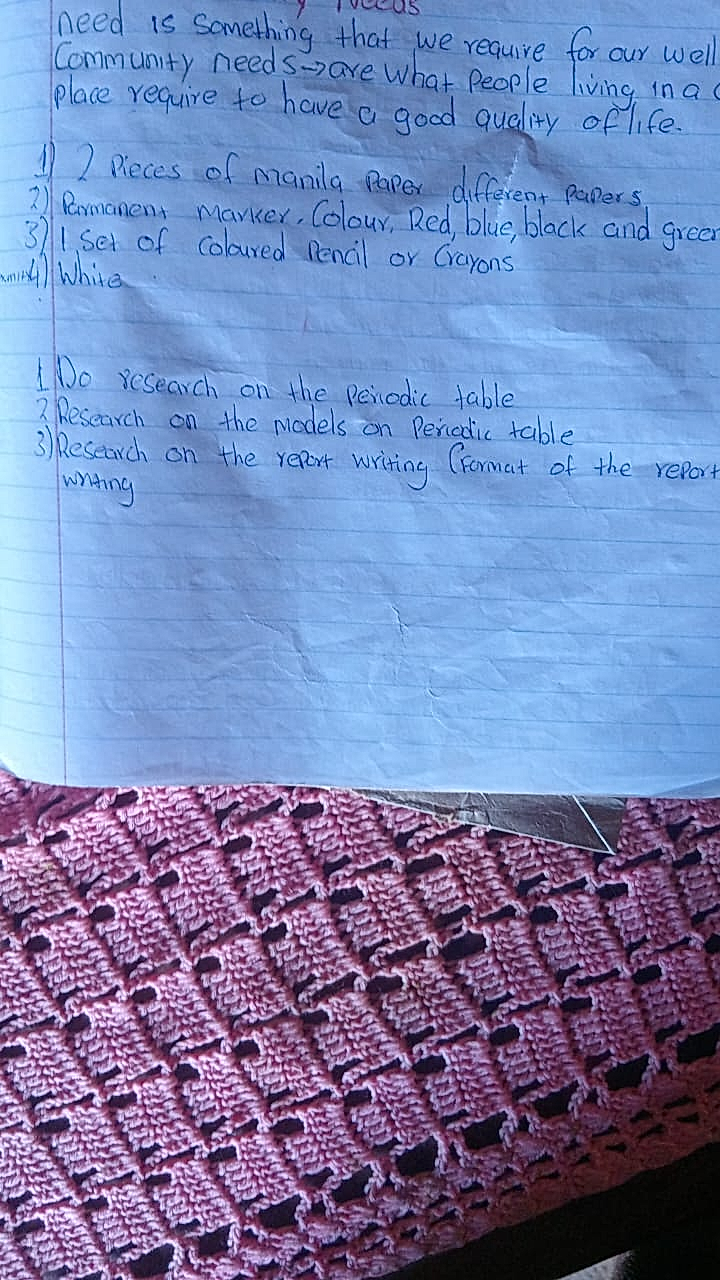 Needs
need is something that we require for our well
Community needs→are what people living in a
place require to have a good quality of life.
1) 2 Pieces of manila Paper different Papers
2) Parmanent marker. Colour, Red, blue, black and green
3) 1 Set of coloured Pencil or Crayons
4) White
1 Do research on the periodic table
2 Research on the models on Periodic table
3) Research on the report writing (Format of the report
writing